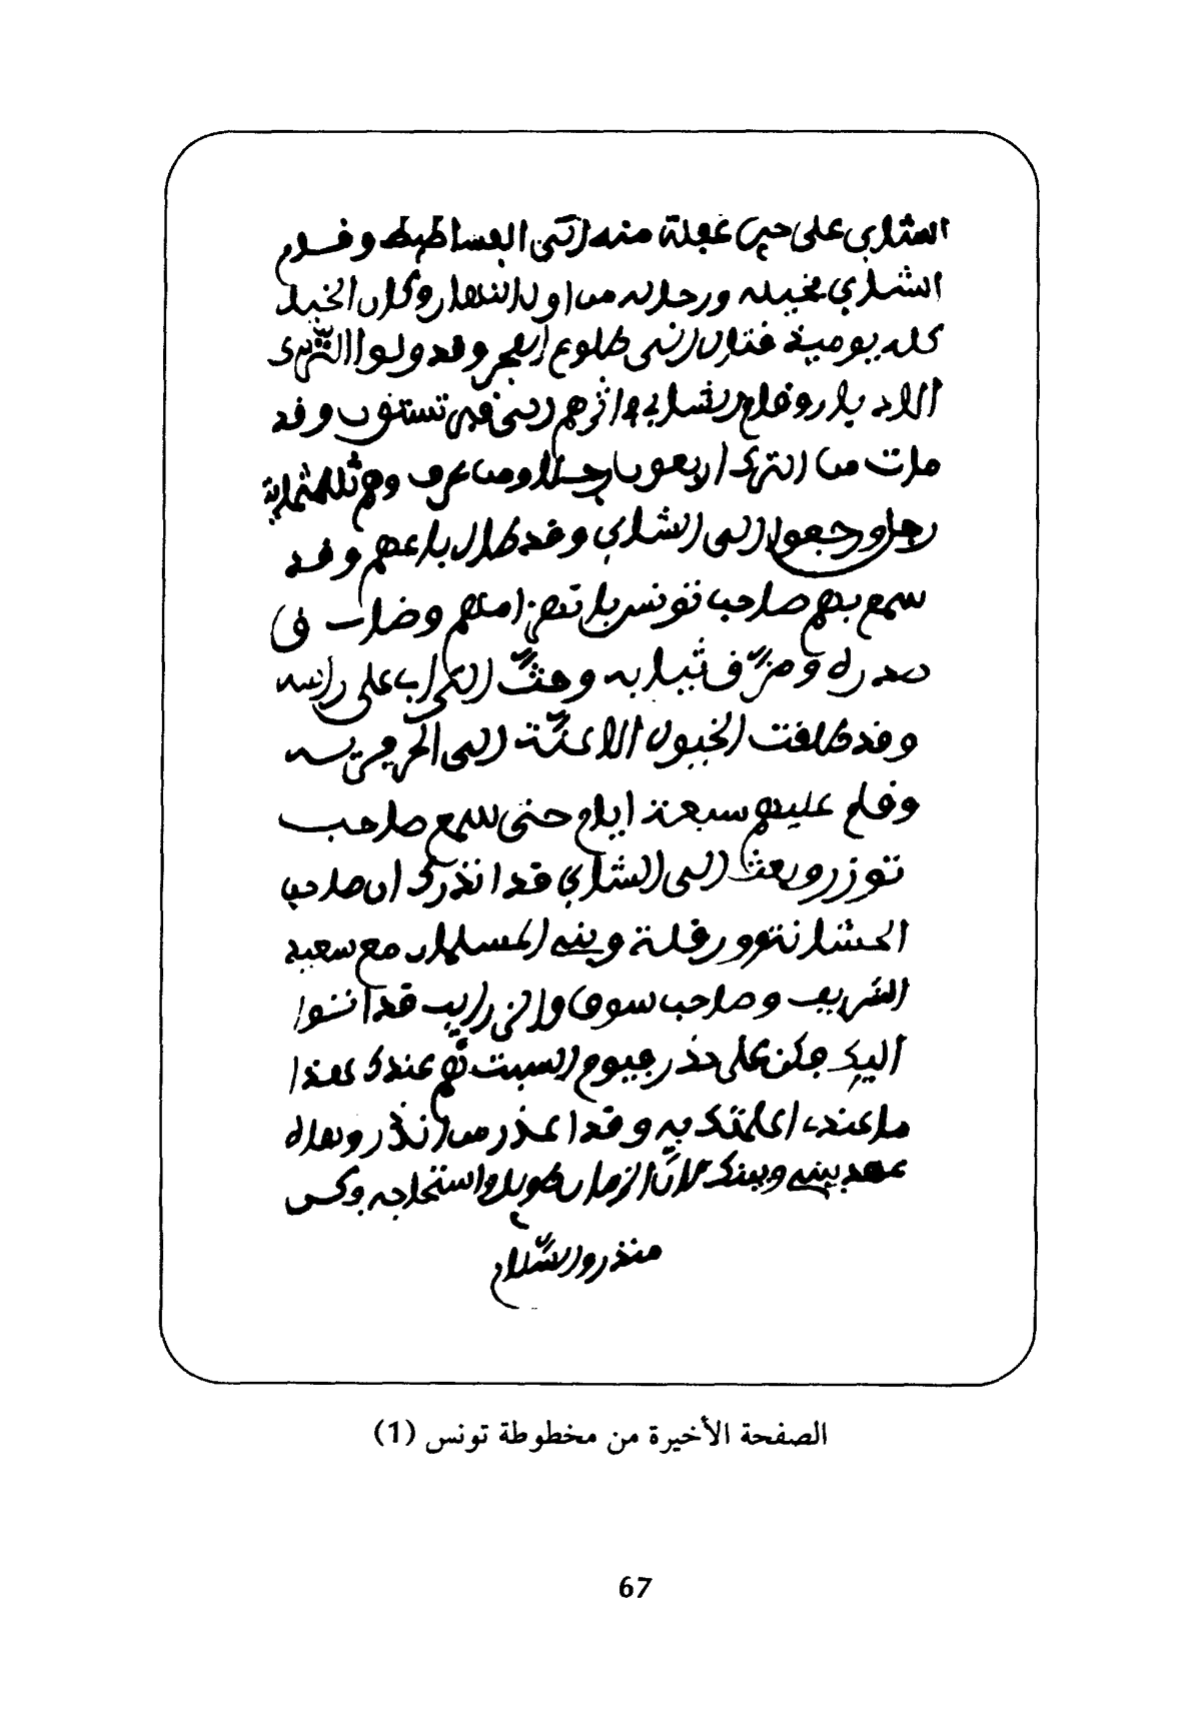 الشابي على حين غفلة منه إلى الفساطيط وقام
الشابي بخيله ورجاله من أول النهار وكان الخيل
كله يومية فتال إلى طلوع الفجر وقد ولوا الترك
الادبار وقام الشابي وأثرهم إلى تستور وقد
مات من الترك اربعون رجلا ومن عرف وهم ثلاثمائة
رجل ورجعوا إلى الشابي وقد طال باعهم وقد
سمع بهم صاحب تونس بانهزامهم وضاق في
صدره ومزّف ثيابه وحثّ التراب على راسه
وقد طافت الخيول الاعنّة إلى
وقام عليهم سبعة ايام حتى سمع صاحب
توزر وبعث إلى الشابي قد انذرك ان صاحب
الحشانة وورقلة وبني المسلمان مع سعيد
الشريف وصاحب سوف والزراب قد اتوا
اليك فكن على حذر فيوم السبت ثم عندك هذا
ما عندي اعلمتك به وقد اعذر من انذر وهاه
عهد بيني وبينك لان الزمان طويل والحاجة وكن
منذر والسّلام
الصفحة الأخيرة من مخطوطة تونس (1)
67